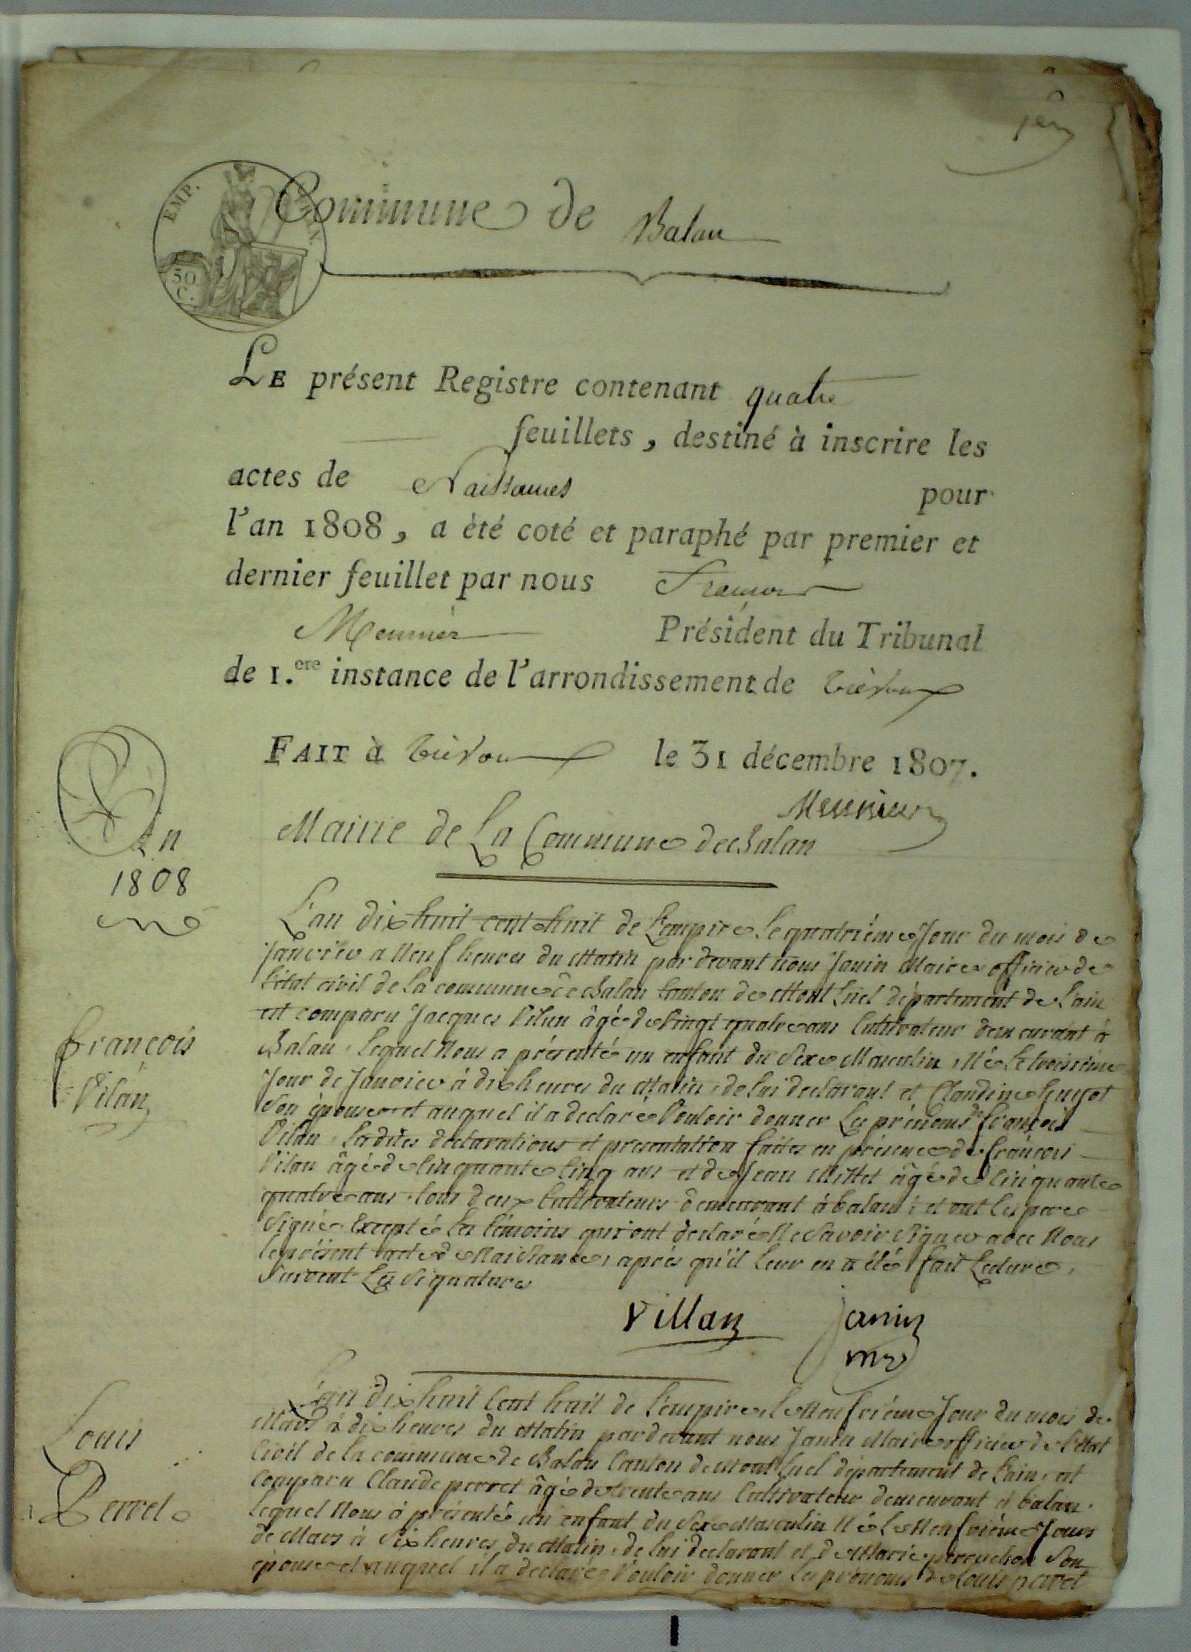 1er
EMP.
50
C.
Commune de Balan
LE présent Registre contenant quatre
feuillets, destiné à inscrire les
actes de Naissances pour
l'an 1808, a èté coté et paraphé par premier et
dernier feuillet par nous François
Meunier Président du Tribunal
de 1.ere instance de l'arrondissement de Trévoux
FAIT à Trévoux le 31 décembre 1807.
Meunier
An
1808
Mairie de La Commune de Balan
L'an dix huit cent huit de L'empire le quatrième Jour du mois de
Janvier a Neuf heures du Matin par devant nous Janin Maire officier de
l'état civil de la commune de Balan Canton de Mont Luel département de L'ain
est comparu Jacques Vilan âgé de Vingt quatre ans Cultivateur demeurant à
Balan, lequel Nous a présenté un enfant du Sexe Masculin Né le troisième
Jour de Janvier à dix heures du Matin, de lui declarant et Claudine Guyot
Son épouse et auquel il a declaré Vouloir donner Les prénoms de François
Vilan, lesdites declarations et presentation faites en présence de françois
Vilan âgé de Cinquante Cinq ans et de Jean Millet âgé de Cinquante
quatre ans tous deux Cultivateurs demeurant à balan; et ont les pere
Signé Excepté les témoins qui ont declaré Ne Savoir Signer avec Nous
le présent acte de Naissance, après qu'il leur en a été fait Lecture,
Suivent Les Signatures
François
Vilan
Villan Janin
mre
L'an dix huit Cent huit de l'empire, le Neufvième Jour du mois de
Mars à dix heures du Matin par devant nous Janin Maire officier de l'état
Civil de la commune de Balan Canton de Mont Luel département de L'ain, est
comparu Claude perret âgé de trente ans Cultivateur demeurant à balan,
lequel Nous à présenté un enfant du Sexe Masculin Né le Neufvième Jour
de Mars à Six heures du Matin, de lui declarant et de Marie Son
épouse et auquel il a declaré Vouloir donner Les prénoms de Louis perret
Louis
Perret